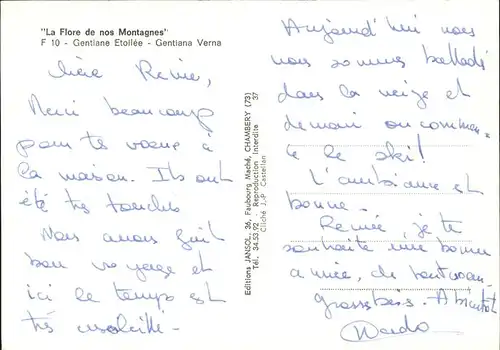 "La Flore de nos Montagnes"
F 10 - Gentiane Etoilée - Gentiana Verna
Chère Renée,
Merci beaucoup
pour tes voeux à
la maison. Ils ont
été très touchés
Nous avons fait
bon voyage et
ici le temps est
très ensoleillé.
Editions JANSOL, 36, Faubourg Maché, CHAMBERY (73)
Tél. 34.53.92 - Reproduction interdite 37
Cliché J.-P. Castellan
Aujourd'hui nous
nous sommes balladés
dans la neige et
demain on commen-
ce le ski!
L'ambiance est
bonne.
Renée, je te
souhaite une bonne
année, de tout coeur.
Grosses bises. A bientôt